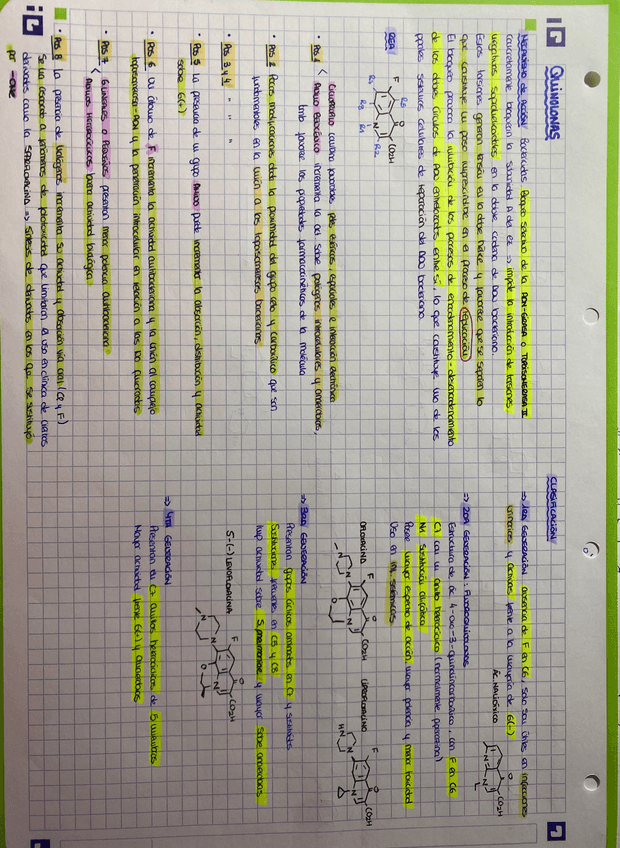 QUINOLONAS
MECANISMO DE ACCIÓN: Bactericidas. Bloqueo selectivo de la ADN-GIRASA o TOPOISOMERASA II
concretamente bloquean la subunidad A del ez => impide la introducción de torsiones
negativas superenrollamientos en la doble cadena de ADN bacteriano.
Estas torsiones generan tensión en la doble hélice y favorece que se separen lo
que constituye un paso imprescindible en el proceso de replicación
El bloqueo provoca la inhibición de los procesos de encadenamiento-desencadenamiento
de los dobles círculos de ADN enlazados entre sí, lo que constituye uno de los
sistemas celulares de reparación del ADN bacteriano.
REA
F
O
CO2H
R5
R7
R8
R1
R2
N
• Pos 1 < CICLOPROPILO
incrementa la act sobre patógenos intracelulares y anaerobios,
las propiedades farmacocinéticas de la molécula
• Pos 2 Pocas modificaciones dada la proximidad del grupo ceto y carboxílico que son
fundamentales en la unión a las topoisomerasas bacterianas
• Pos 3 y 4 " " "
• Pos 5 La presencia de un grupo AMINO puede incrementar la absorción, distribución y actividad
sobre G(+)
• Pos 6 Un átomo de F incrementa la actividad antibacteriana y la unión al complejo
topoisomerasa-ADN y la penetración intracelular en relación a las no fluoradas
• Pos 7 <
presentan menor potencia antibacteriana
ANILLOS HETEROCÍCLICOS buena actividad biológica
• Pos 8 La presencia de halógenos incrementa su actividad y absorción vía oral (Cl y F)
Se ha asociado a fenómenos de fototoxicidad que limitaron el uso en clínica de varios
derivados como la SPARFLOXACINA => Síntesis de derivados en los que se sustituyó
por -OMe
CLASIFICACIÓN
=> 1ERA GENERACIÓN: ausencia de F en C6, solo son útiles en infecciones
urinarias y activos frente a la mayoría de G(-)
ÁC. NALIDÍXICO
O
CO2H
N
N
=> 2DA GENERACIÓN: FLUOROQUINOLONAS
Estructura de ác 4-oxo-3-quinolincarboxílico, con F en C6
C7 con un anillo heterocíclico (normalmente piperacina)
N1 sustitución alifática
Posee mayor espectro de acción, mayor potencia y menor toxicidad
Uso en inf. sistémicas
OFLOXACINO
F
O
CO2H
N
N
N
O
CIPROFLOXACINO
F
O
CO2H
N
N
HN
=> 3ERA GENERACIÓN
Presentan grupos cíclicos aminados en C7 y sustituidos
Sustituciones en C5 y C8
Mayor actividad sobre S. pneumoniae y mayor sobre anaerobios
S-(-) LEVOFLOXACINA
F
O
CO2H
N
N
N
O
=> 4TA GENERACIÓN
Presentan en C7 anillos heterocíclicos de 5 miembros
Mayor actividad frente G(+) y anaerobios